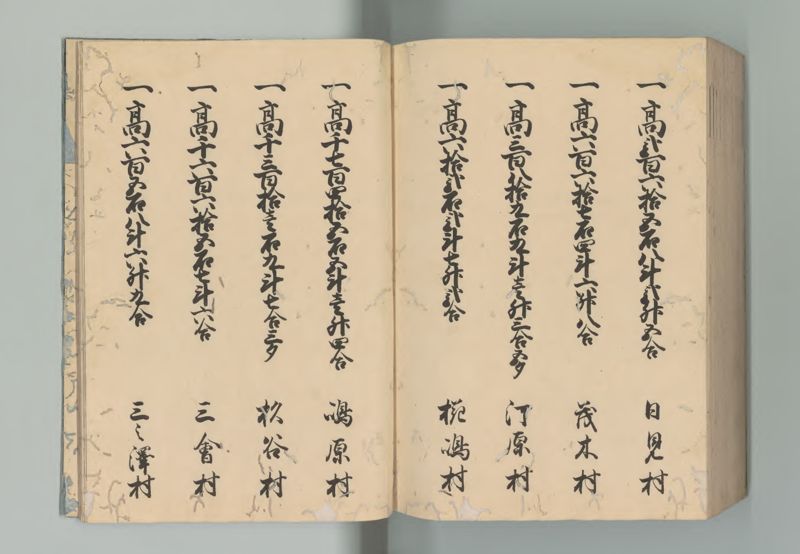 一高弐百六拾五石八斗弐升五合 日見村
一高六百六拾七石四斗六升八合 茂木村
一高三百八拾九石九斗壱升三合五夕 河原村
一高六拾弐石弐斗七升弐合 椛嶋村
一高千七百四拾五石五斗壱升四合 嶋原村
一高千三百拾壱石九斗七合三夕 杦谷村
一高千六百六拾五石七斗六合 三會村
一高六百五石八斗六升九合 三之澤村